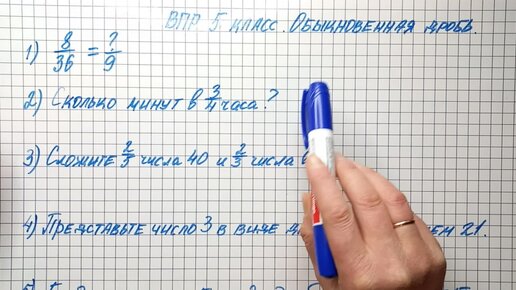 ВПР 5 класс. Обыкновенная дробь.
1) 8/36 = ?/9
2) Сколько минут в 3/4 часа?
3) Сложите 2/5 числа 40 и 2/3 числа
4) Представьте число 3 в виде 21.